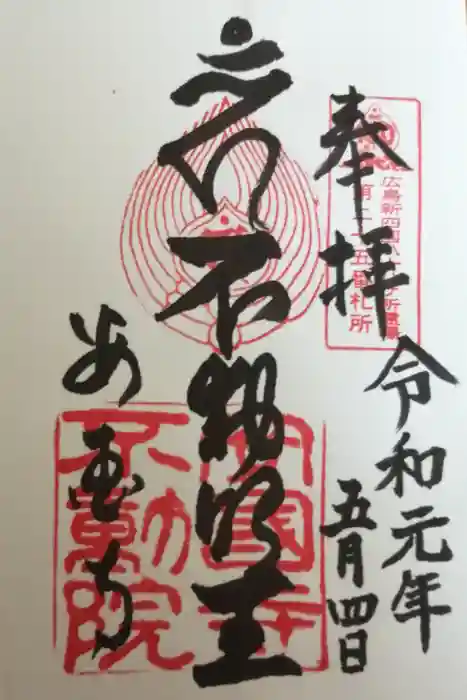 奉拝
令和元年
五月四日
広島新四国八十八ヶ所霊場
第二十五番札所
不動明王
安國寺
不動院
安国寺